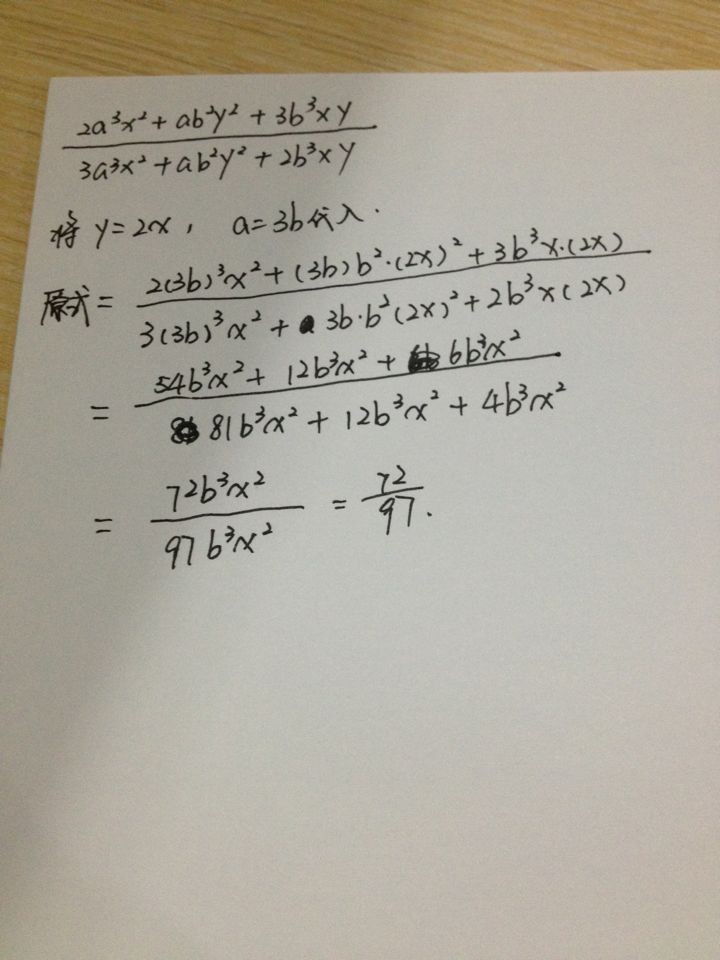 2a³x² + ab²y² + 3b³xy
3a³x² + ab²y² + 2b³xy
将 y=2x, a=3b代入.
原式 = 2(3b)³x² + (3b)b²·(2x)² + 3b³x·(2x)
3(3b)³x² + 3b·b²(2x)² + 2b³x(2x)
54b³x² + 12b³x² + 6b³x²
= 81b³x² + 12b³x² + 4b³x²
= 72b³x² / 97b³x² = 72/97.